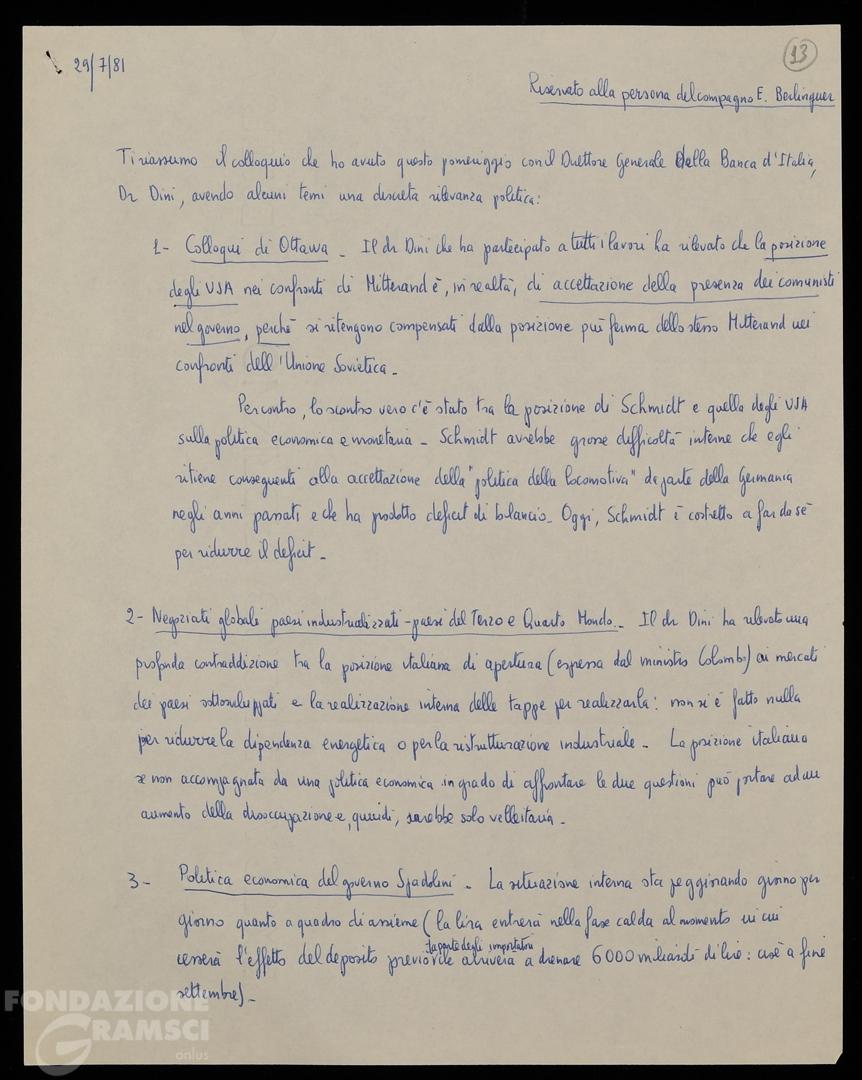 13
29/7/81
Riservato alla persona del compagno E. Berlinguer
Ti riassumo il colloquio che ho avuto questo pomeriggio con il Direttore Generale della Banca d'Italia,
Dr Dini, avendo alcuni temi una discreta rilevanza politica:
1- Colloqui di Ottawa - Il dr Dini che ha partecipato a tutti i lavori ha rilevato che la posizione
degli USA nei confronti di Mitterand è, in realtà, di accettazione della presenza dei comunisti
nel governo, perché si ritengono compensati dalla posizione più ferma dello stesso Mitterand nei
confronti dell'Unione Sovietica -
Per contro, lo scontro vero c'è stato tra la posizione di Schmidt e quella degli USA
sulla politica economica e monetaria - Schmidt avrebbe grosse difficoltà interne che egli
ritiene conseguenti alla accettazione della "politica della locomotiva" da parte della Germania
negli anni passati e che ha prodotto deficit di bilancio - Oggi, Schmidt è costretto a far da sé
per ridurre il deficit -
2- Negoziati globali paesi industrializzati - paesi del Terzo e Quarto Mondo - Il dr Dini ha rilevato una
profonda contraddizione tra la posizione italiana di apertura (espressa dal ministro Colombo) ai mercati
dei paesi sottosviluppati e la realizzazione interna delle tappe per realizzarla: non si è fatto nulla
per ridurre la dipendenza energetica o per la ristrutturazione industriale - La posizione italiana
se non accompagnata da una politica economica in grado di affrontare le due questioni può portare ad un
aumento della disoccupazione e, quindi, sarebbe solo velleitaria -
3- Politica economica del governo Spadolini - La situazione interna sta peggiorando giorno per
giorno quanto a quadro di assieme (la lira entrerà nella fase calda al momento in cui
da parte degli importatori
cesserà l'effetto del deposito previo che arriverà a drenare 6000 miliardi di lire: cioè a fine
settembre) -
FONDAZIONE
GRAMSCI
onlus